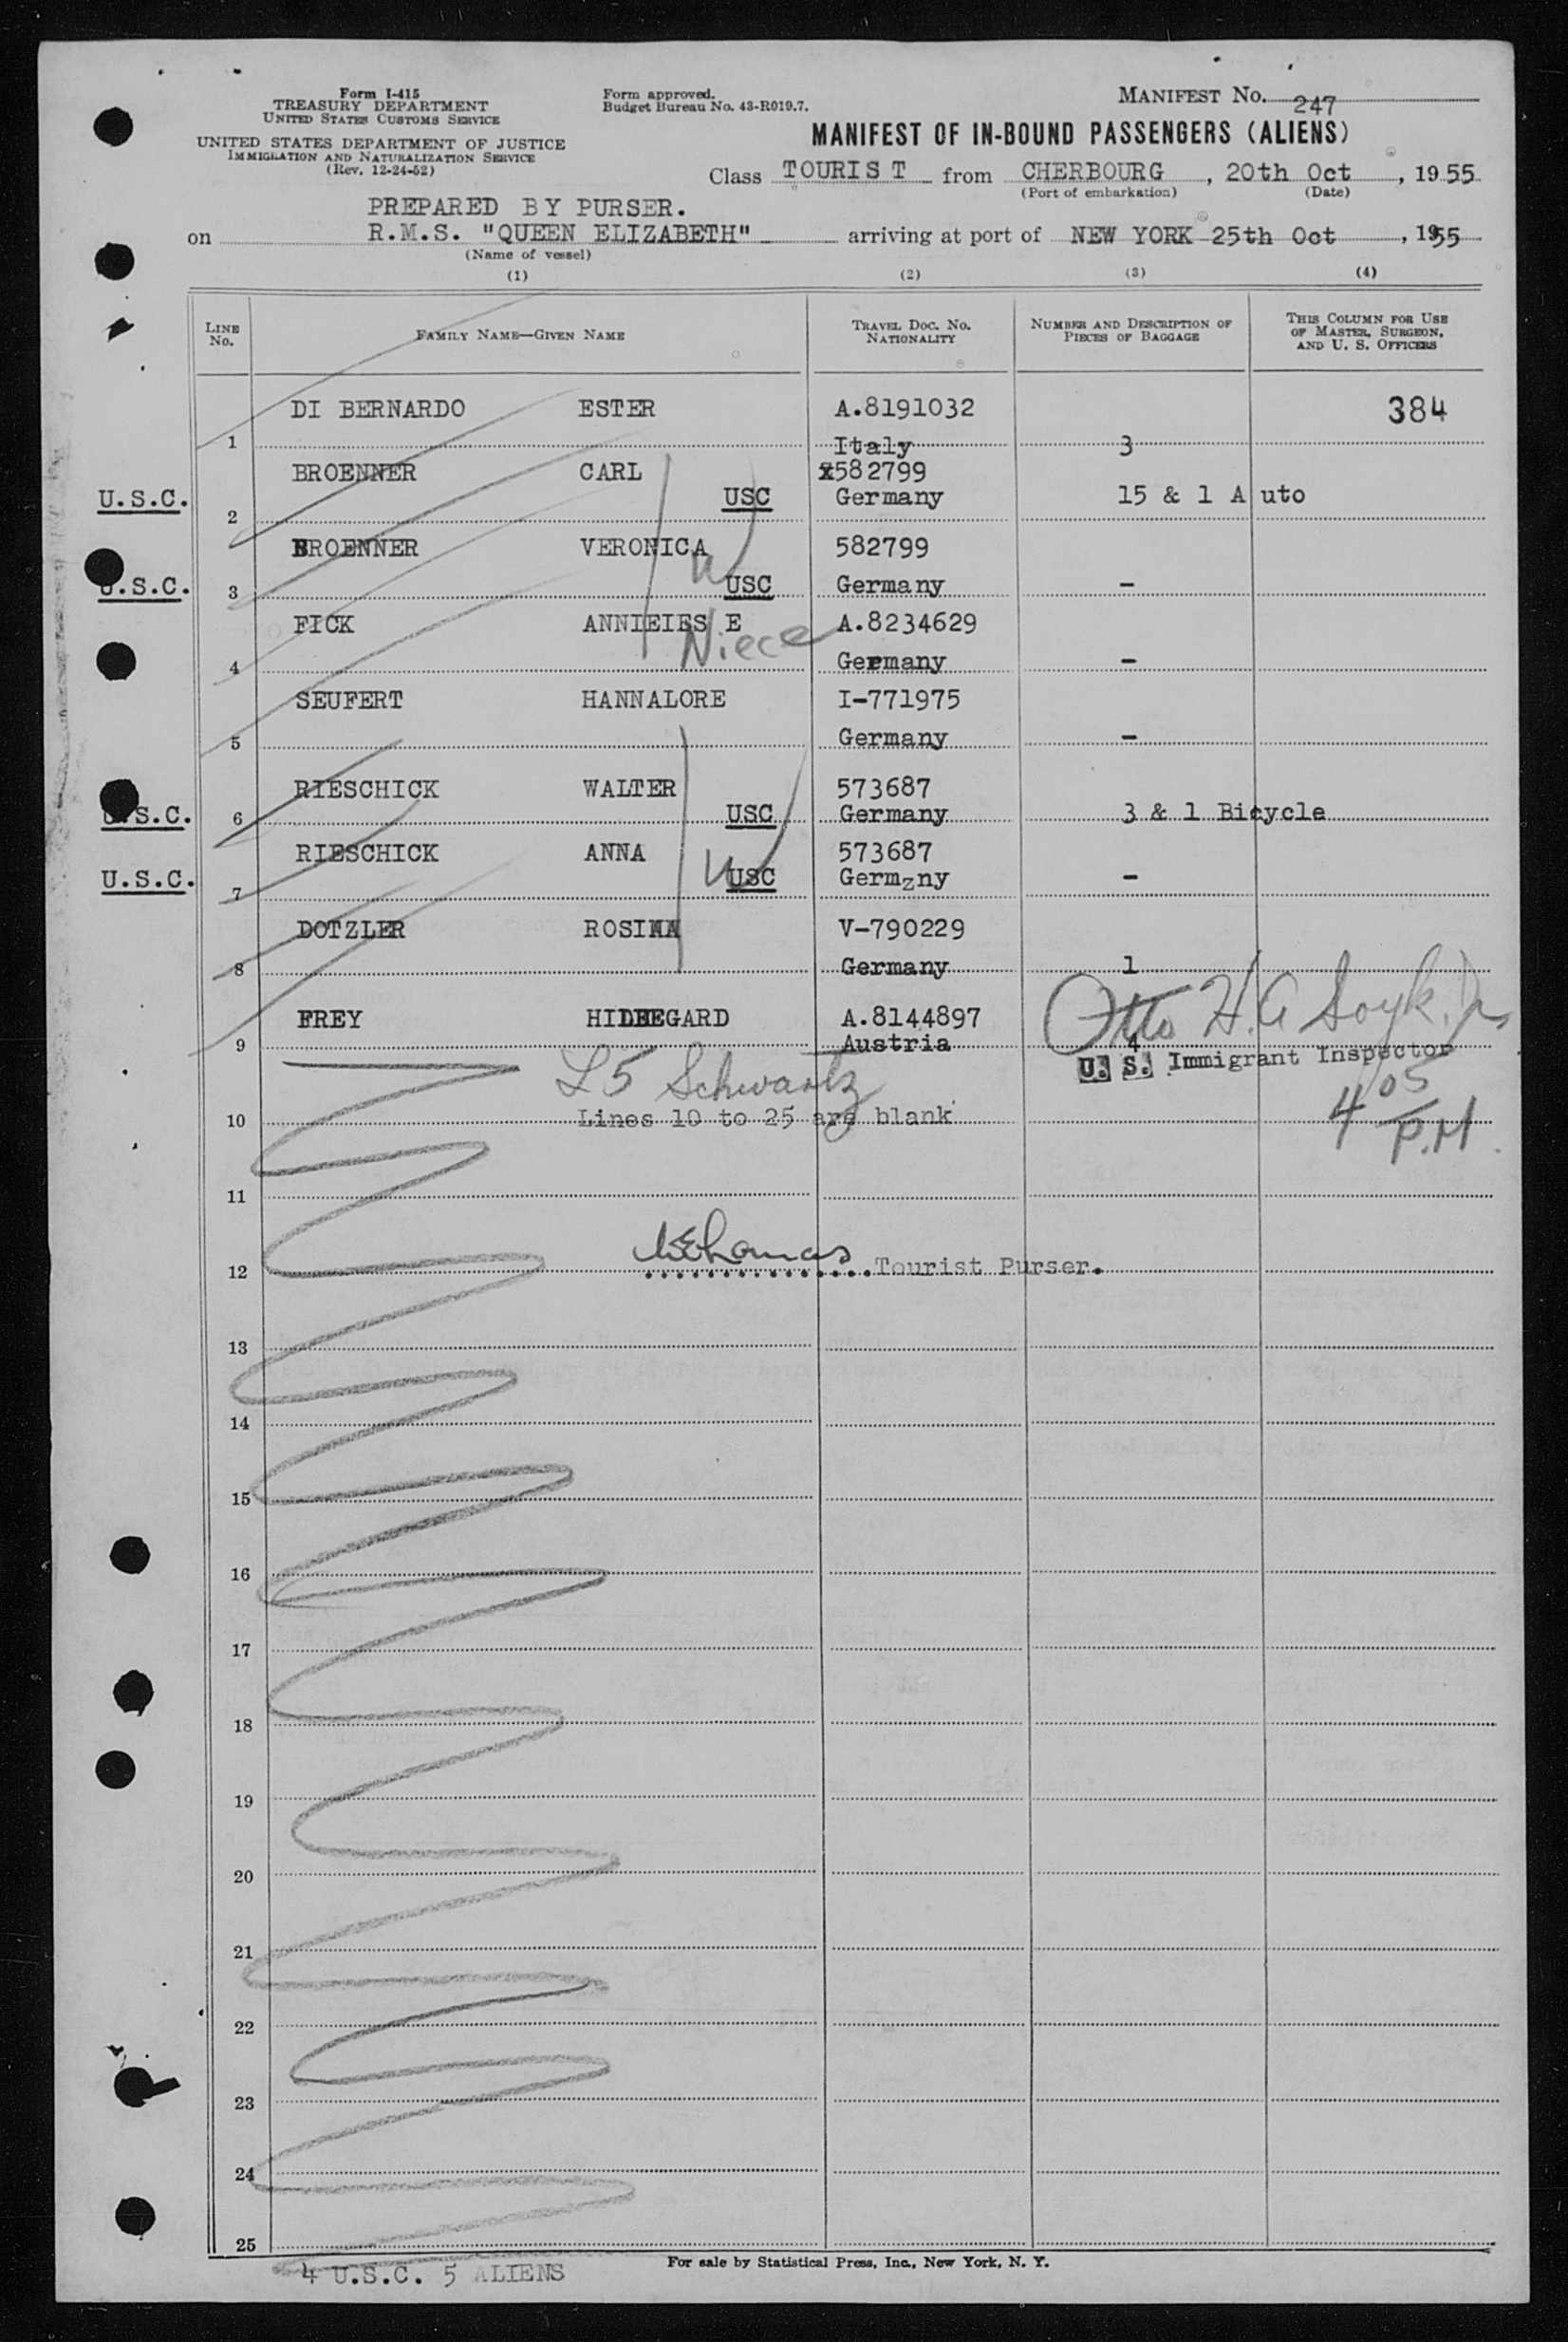 Form I-415
TREASURY DEPARTMENT
UNITED STATES CUSTOMS SERVICE
UNITED STATES DEPARTMENT OF JUSTICE
IMMIGRATION AND NATURALIZATION SERVICE
(Rev. 12-24-52)
Form approved.
Budget Bureau No. 43-R019.7.
MANIFEST No. 247
MANIFEST OF IN-BOUND PASSENGERS (ALIENS)
Class TOURIST from CHERBOURG, 20th Oct, 1955
(Port of embarkation) (Date)
PREPARED BY PURSER.
on R.M.S. "QUEEN ELIZABETH" arriving at port of NEW YORK 25th Oct, 1955
(Name of vessel)
(1) (2) (3) (4)
LINE No. FAMILY NAME—GIVEN NAME TRAVEL DOC. No. NATIONALITY NUMBER AND DESCRIPTION OF PIECES OF BAGGAGE THIS COLUMN FOR USE OF MASTER, SURGEON, AND U. S. OFFICERS
DI BERNARDO ESTER A.8191032 384
1 Italy 3
BROENNER CARL 582799
U.S.C. 2 USC Germany 15 & 1 A uto
BROENNER VERONICA 582799
U.S.C. 3 W USC Germany -
FICK ANNIEIES E A.8234629
Niece
4 Germany -
SEUFERT HANNALORE I-771975
5 Germany -
RIESCHICK WALTER 573687
U.S.C. 6 USC Germany 3 & 1 Bicycle
RIESCHICK ANNA 573687
U.S.C. 7 W USC Germzny -
DOTZLER ROSINA V-790229
8 Germany 1
FREY HILDEGARD A.8144897
9 Austria 4
Otto H.A Soyk Jr
U. S. Immigrant Inspector
L5 Schwartz
405 P.M.
10 Lines 10 to 25 are blank
11
12 Tourist Purser.
13
14
15
16
17
18
19
20
21
22
23
24
25
For sale by Statistical Press, Inc., New York, N. Y.
4 U.S.C. 5 ALIENS